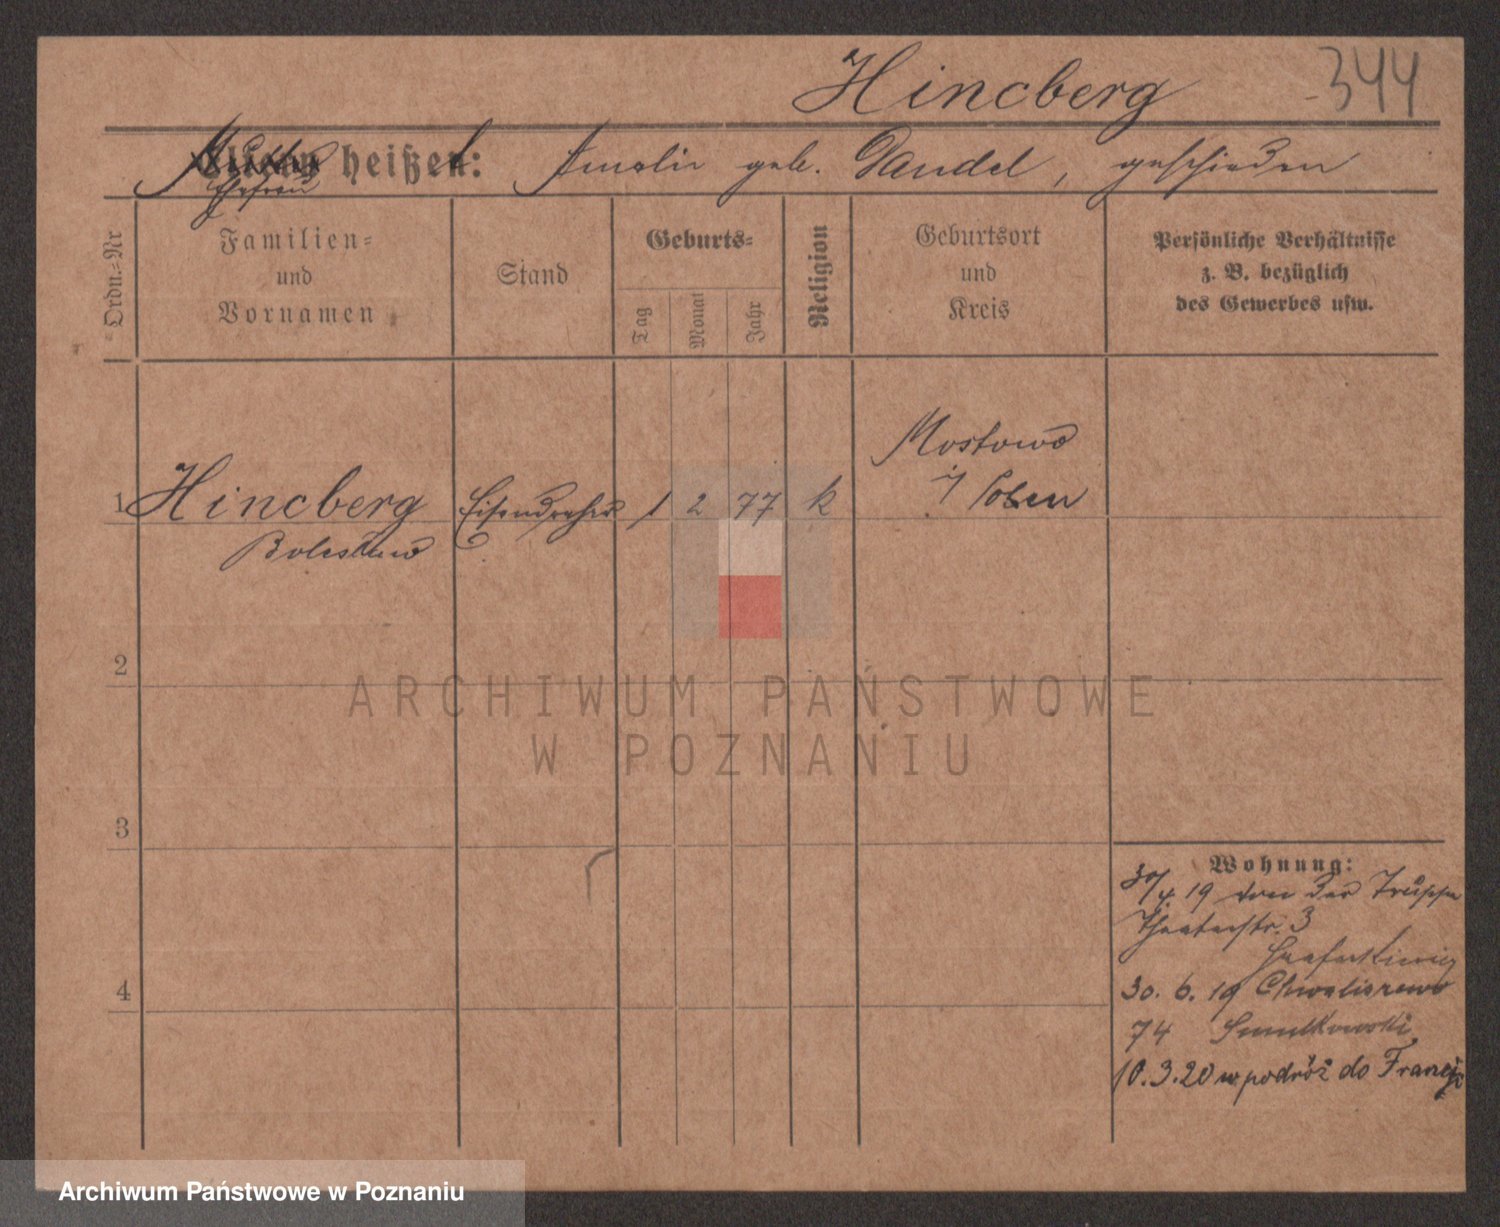 Hincberg 344
heißet: Amalie geb. Pandel, geschieden
Ehefrau
Ordn.-Nr
Familien-
und
Vornamen
Stand
Geburts-
Tag
Monat
Jahr
Religion
Geburtsort
und
Kreis
Persönliche Verhältnisse
z. B. bezüglich
des Gewerbes usw.
Mostowo
1 Hincberg Eisendreher 1 2 77 k
Boleslaw
2
ARCHIWUM PAŃSTWOWE
W POZNANIU
3
Wohnung:
30/4. 19 von der Truppe
Theaterstr. 3
4
30. 6. 19 Chwaliszewo
74
10.3.20 w podróż do Francji
Archiwum Państwowe w Poznaniu